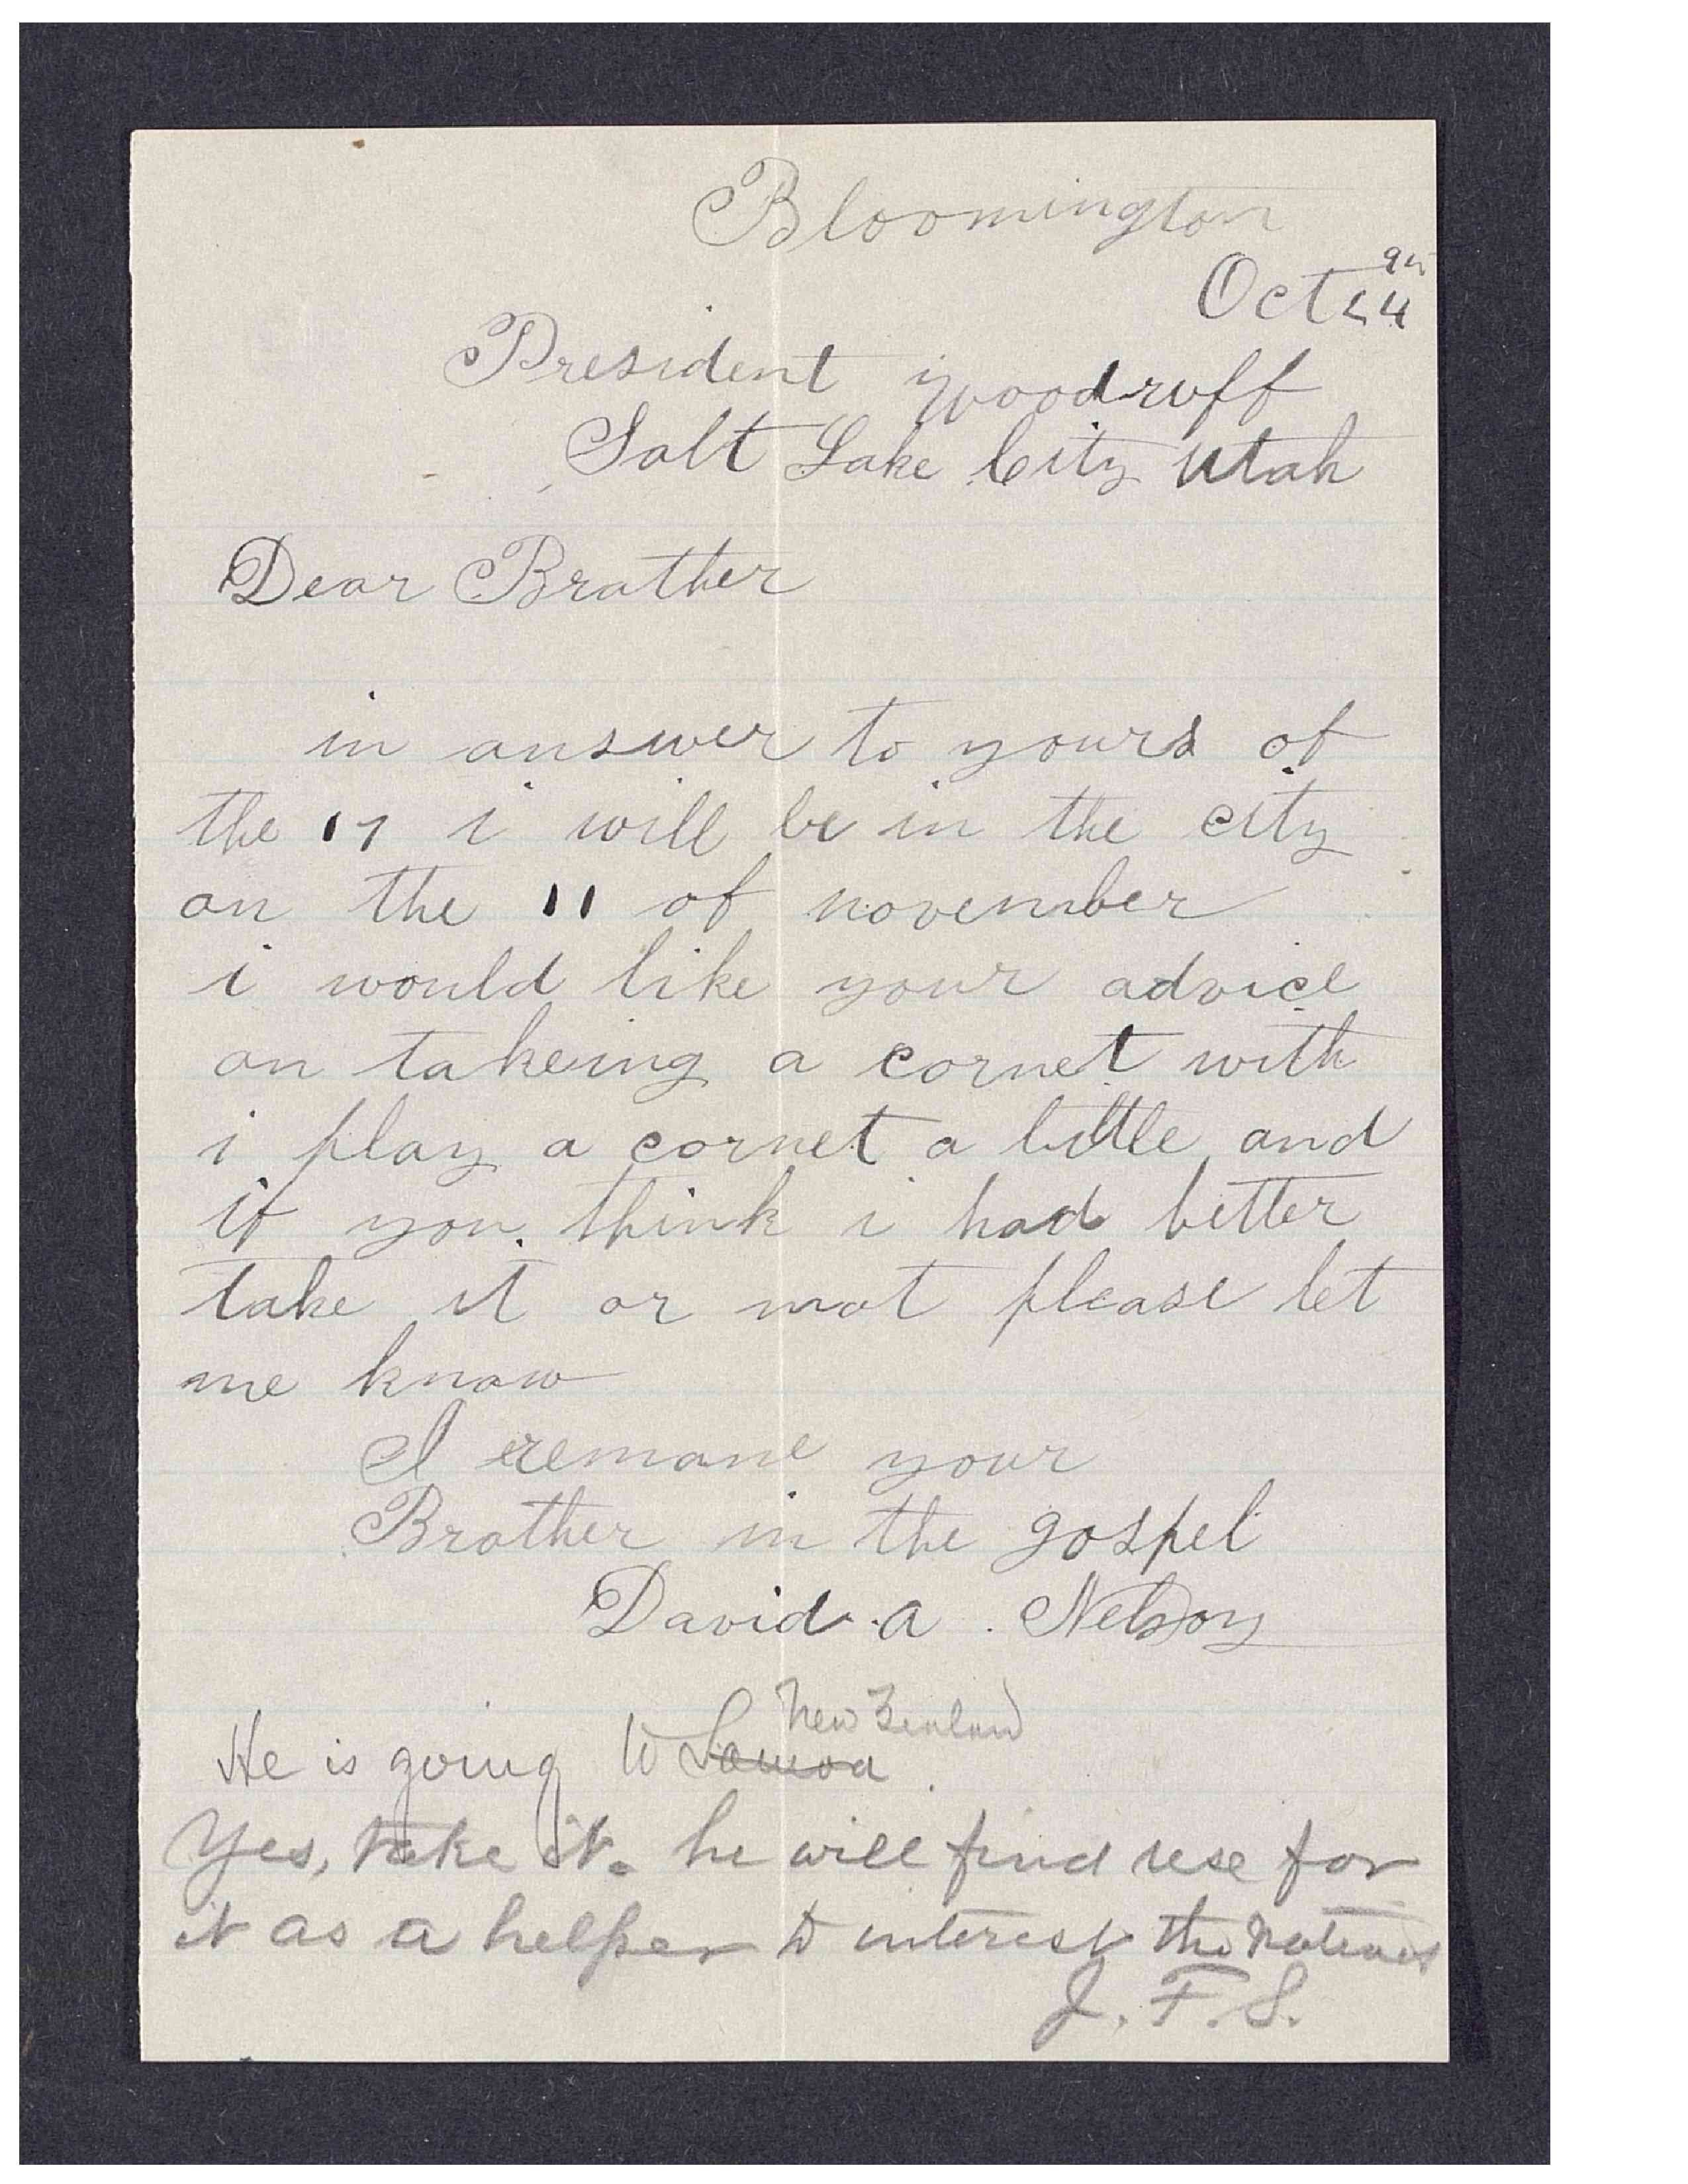 Bloomington
Oct 24
President Woodruff
Salt Lake City Utah
Dear Brother
in answer to yours of
the 17 i will be in the city
on the 11 of november
i would like your advice
on takeing a cornet with
i play a cornet a little and
if you think i had better
take it or not please let
me know
I remane your
Brother in the gospel
David. a. Nelson
New Zealand
He is going to Samoa.
Yes, take it. he will find use for
it as a helper to interest the natives
J. F. S.